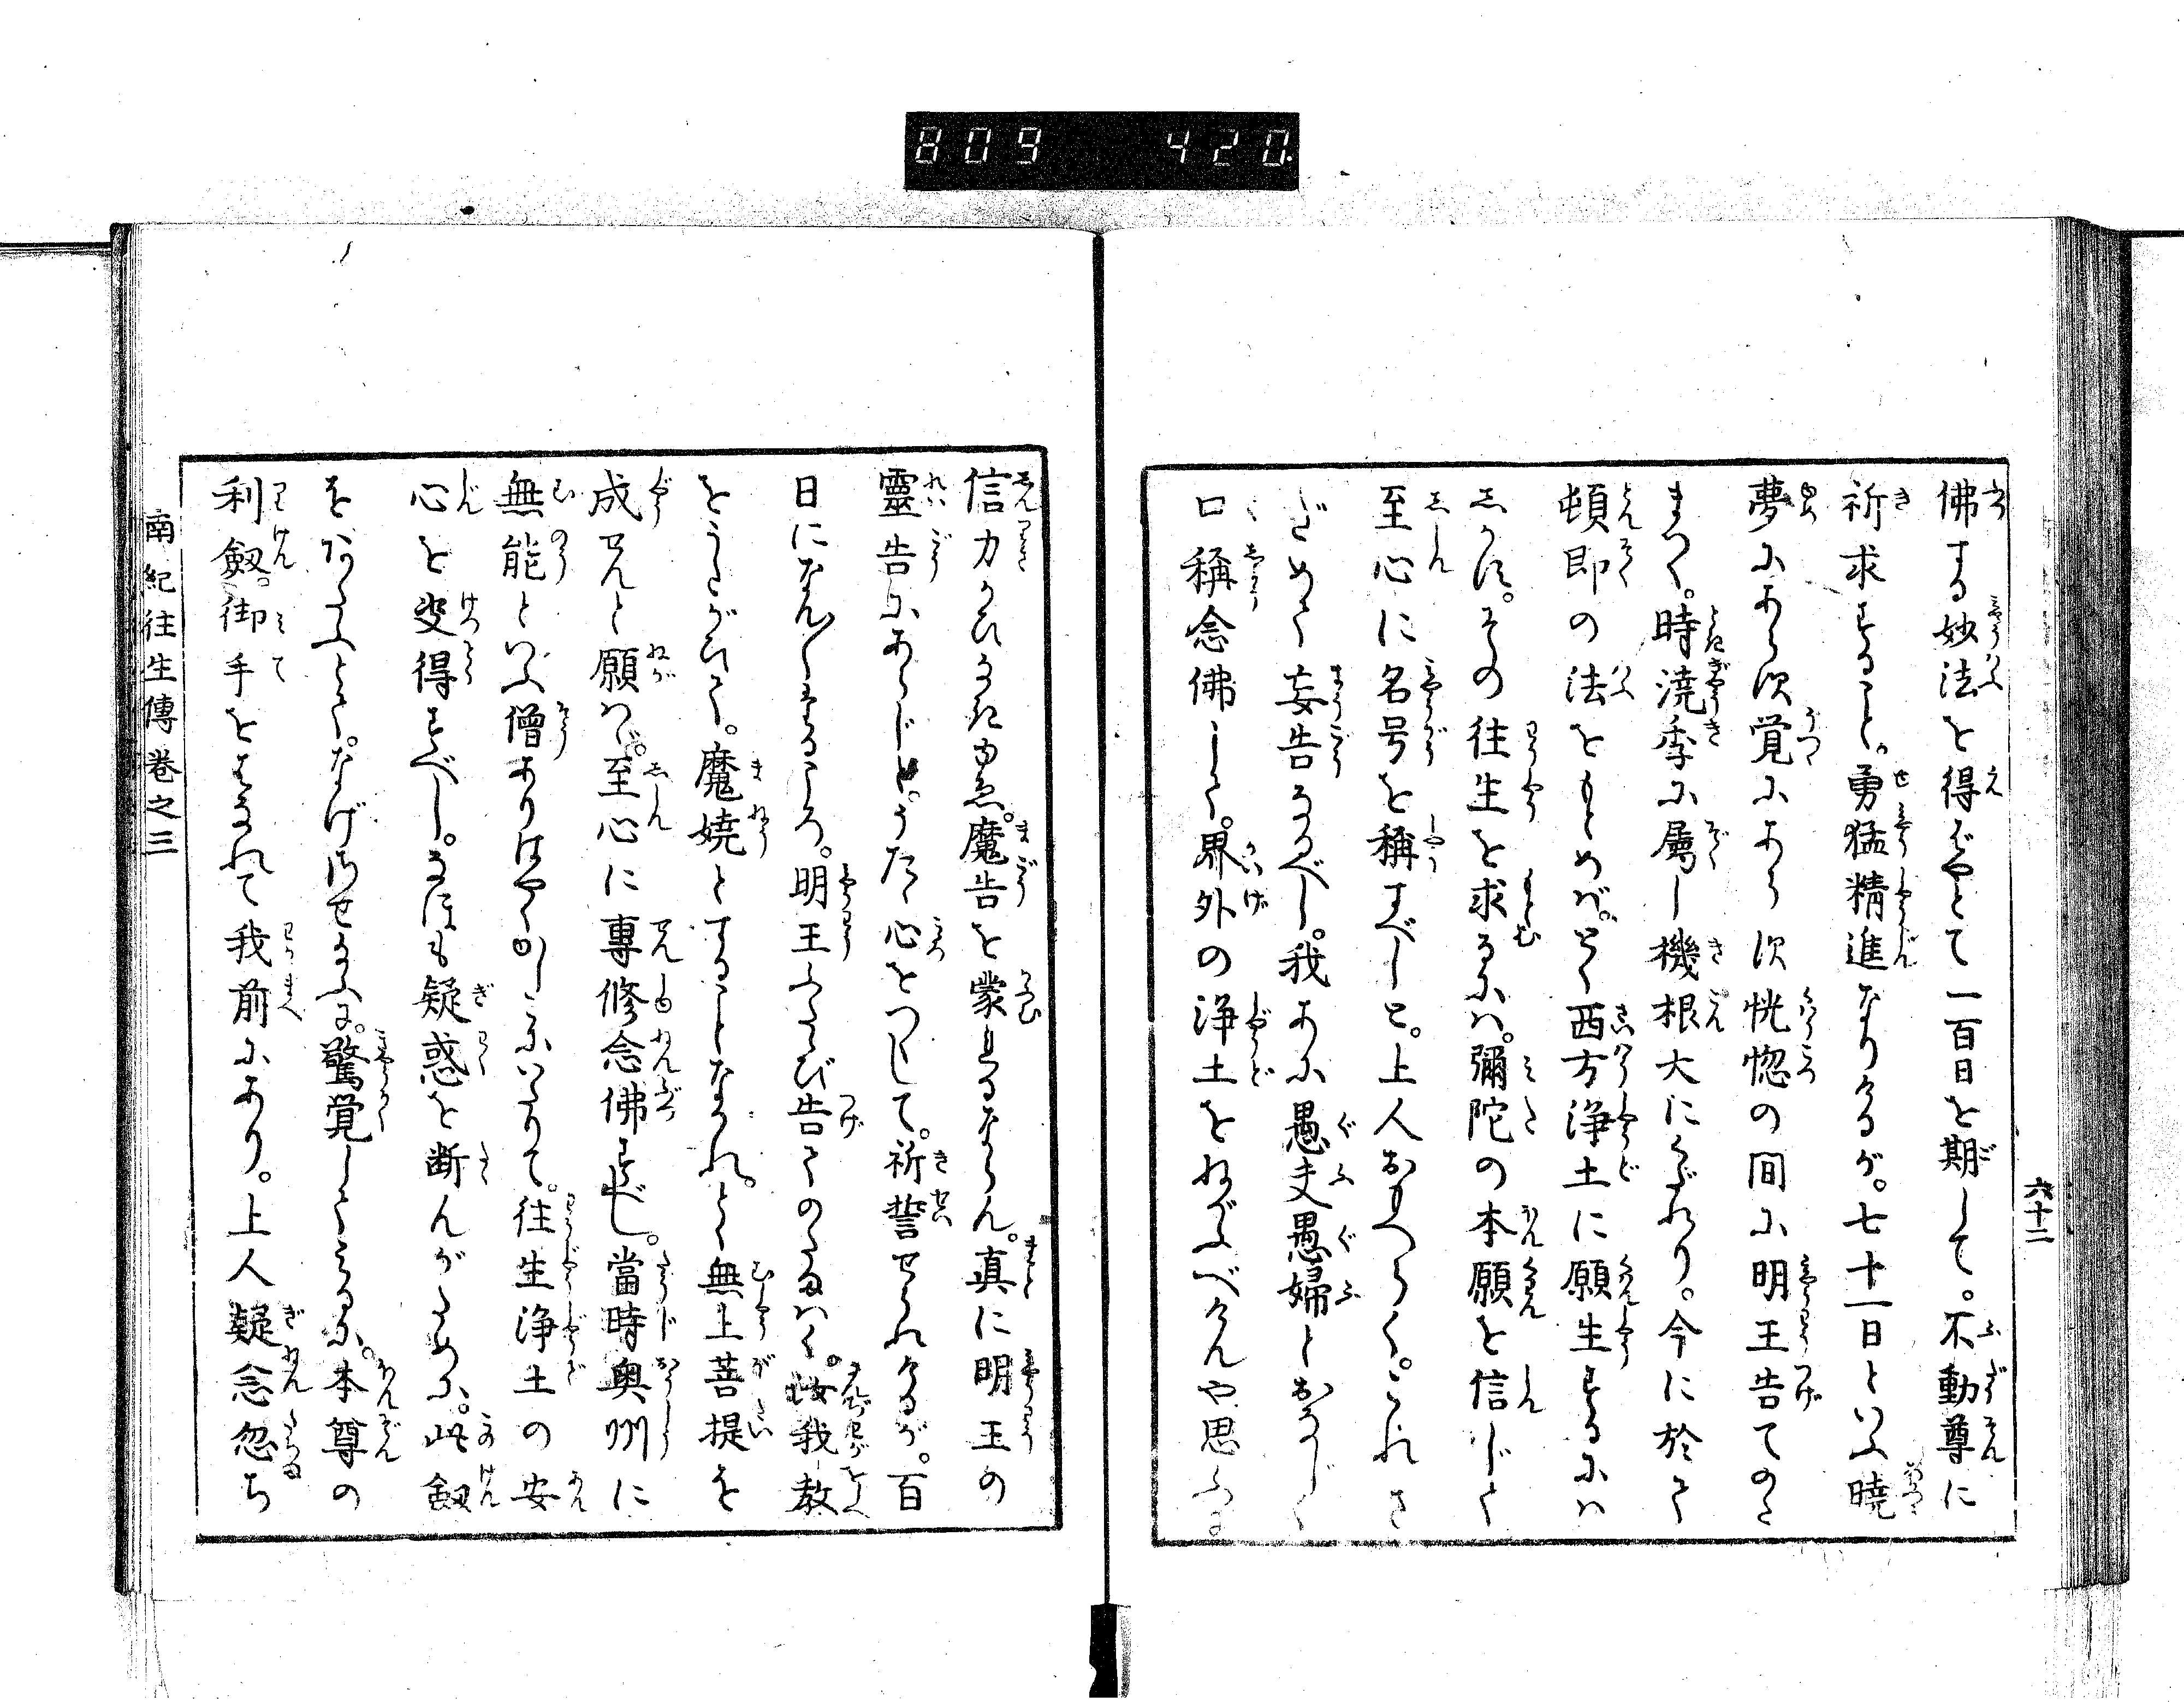 809 420
六十二
佛する妙法を得ばやとて一百日を期して。不動尊に
祈求すること。勇猛精進なりけるが。七十一日といふ曉
夢にあらず覚にあらず恍惚の間に明王告てのた
まはく。時澆季に属し機根大にくだれり。今に於て
頓即の法をもとめば。とく西方浄土に願生するには
しかず。その往生を求るには。彌陀の本願を信じて
至心に名号を稱すべしと。上人おもへらく。これさ
だめて妄告なるべし。我あに愚夫愚婦とおなじく
口稱念佛して。界外の浄土をねがふべけんや思ふに
信力うすきゆゑ。魔告を蒙れるならん。真に明王の
靈告にあらじと。うたゝ心をつくして。祈誓せられけるが。百
日になん〳〵するころ。明王ふたゝび告てのたまはく。汝我教
をうたがひて。魔嬈とすることなかれ。とく無上菩提を
成せんと願はゞ。至心に專修念佛すべし。當時奥州に
無能といふ僧ありはやくかしこにいたりて。往生浄土の安
心を受得すべし。なほも疑惑を断んがために。此劔
をあたふとて。なげ給はせたまふに。驚覚してみるに。本尊の
利劔。御手をはなれて我前にあり。上人疑念忽ち
南紀往生傳巻之三